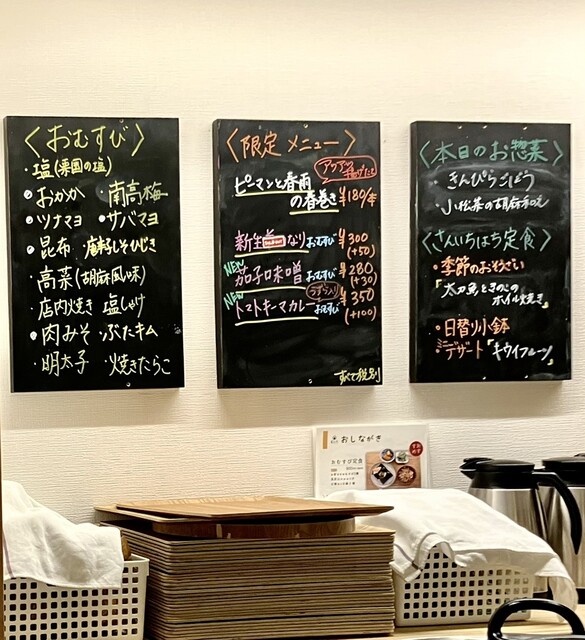 〈おむすび〉
・塩(粟国の塩)
・おかか ・南高梅
・ツナマヨ ・サバマヨ
・昆布 ・唐辛しそひじき
・高菜(胡麻風味)
・店内焼き 塩しゃけ
・肉みそ ・ぶたキム
・明太子 ・焼きたらこ
〈限定 メニュー〉
アツアツ
ピーマンと春雨
の春巻き ¥180/本
なり おむすび ¥300
(+50)
NEW
茄子味噌 おむすび ¥280
(+30)
NEW
うずら入り
トマトキーマカレー おむすび ¥350
(+100)
すべて税別
〈本日のお惣菜〉
・きんぴらごぼう
・小松菜の胡麻和え
〈さんいちはち定食〉
・季節のおそうざい
「太刀魚ときのこの
ホイル焼き」
・日替り小鉢
・ミニデザート「キウイフルーツ」
おしながき
おむすび定食